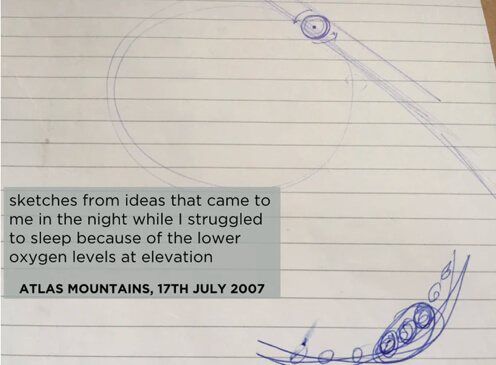 sketches from ideas that came to
me in the night while I struggled
to sleep because of the lower
oxygen levels at elevation
ATLAS MOUNTAINS, 17TH JULY 2007